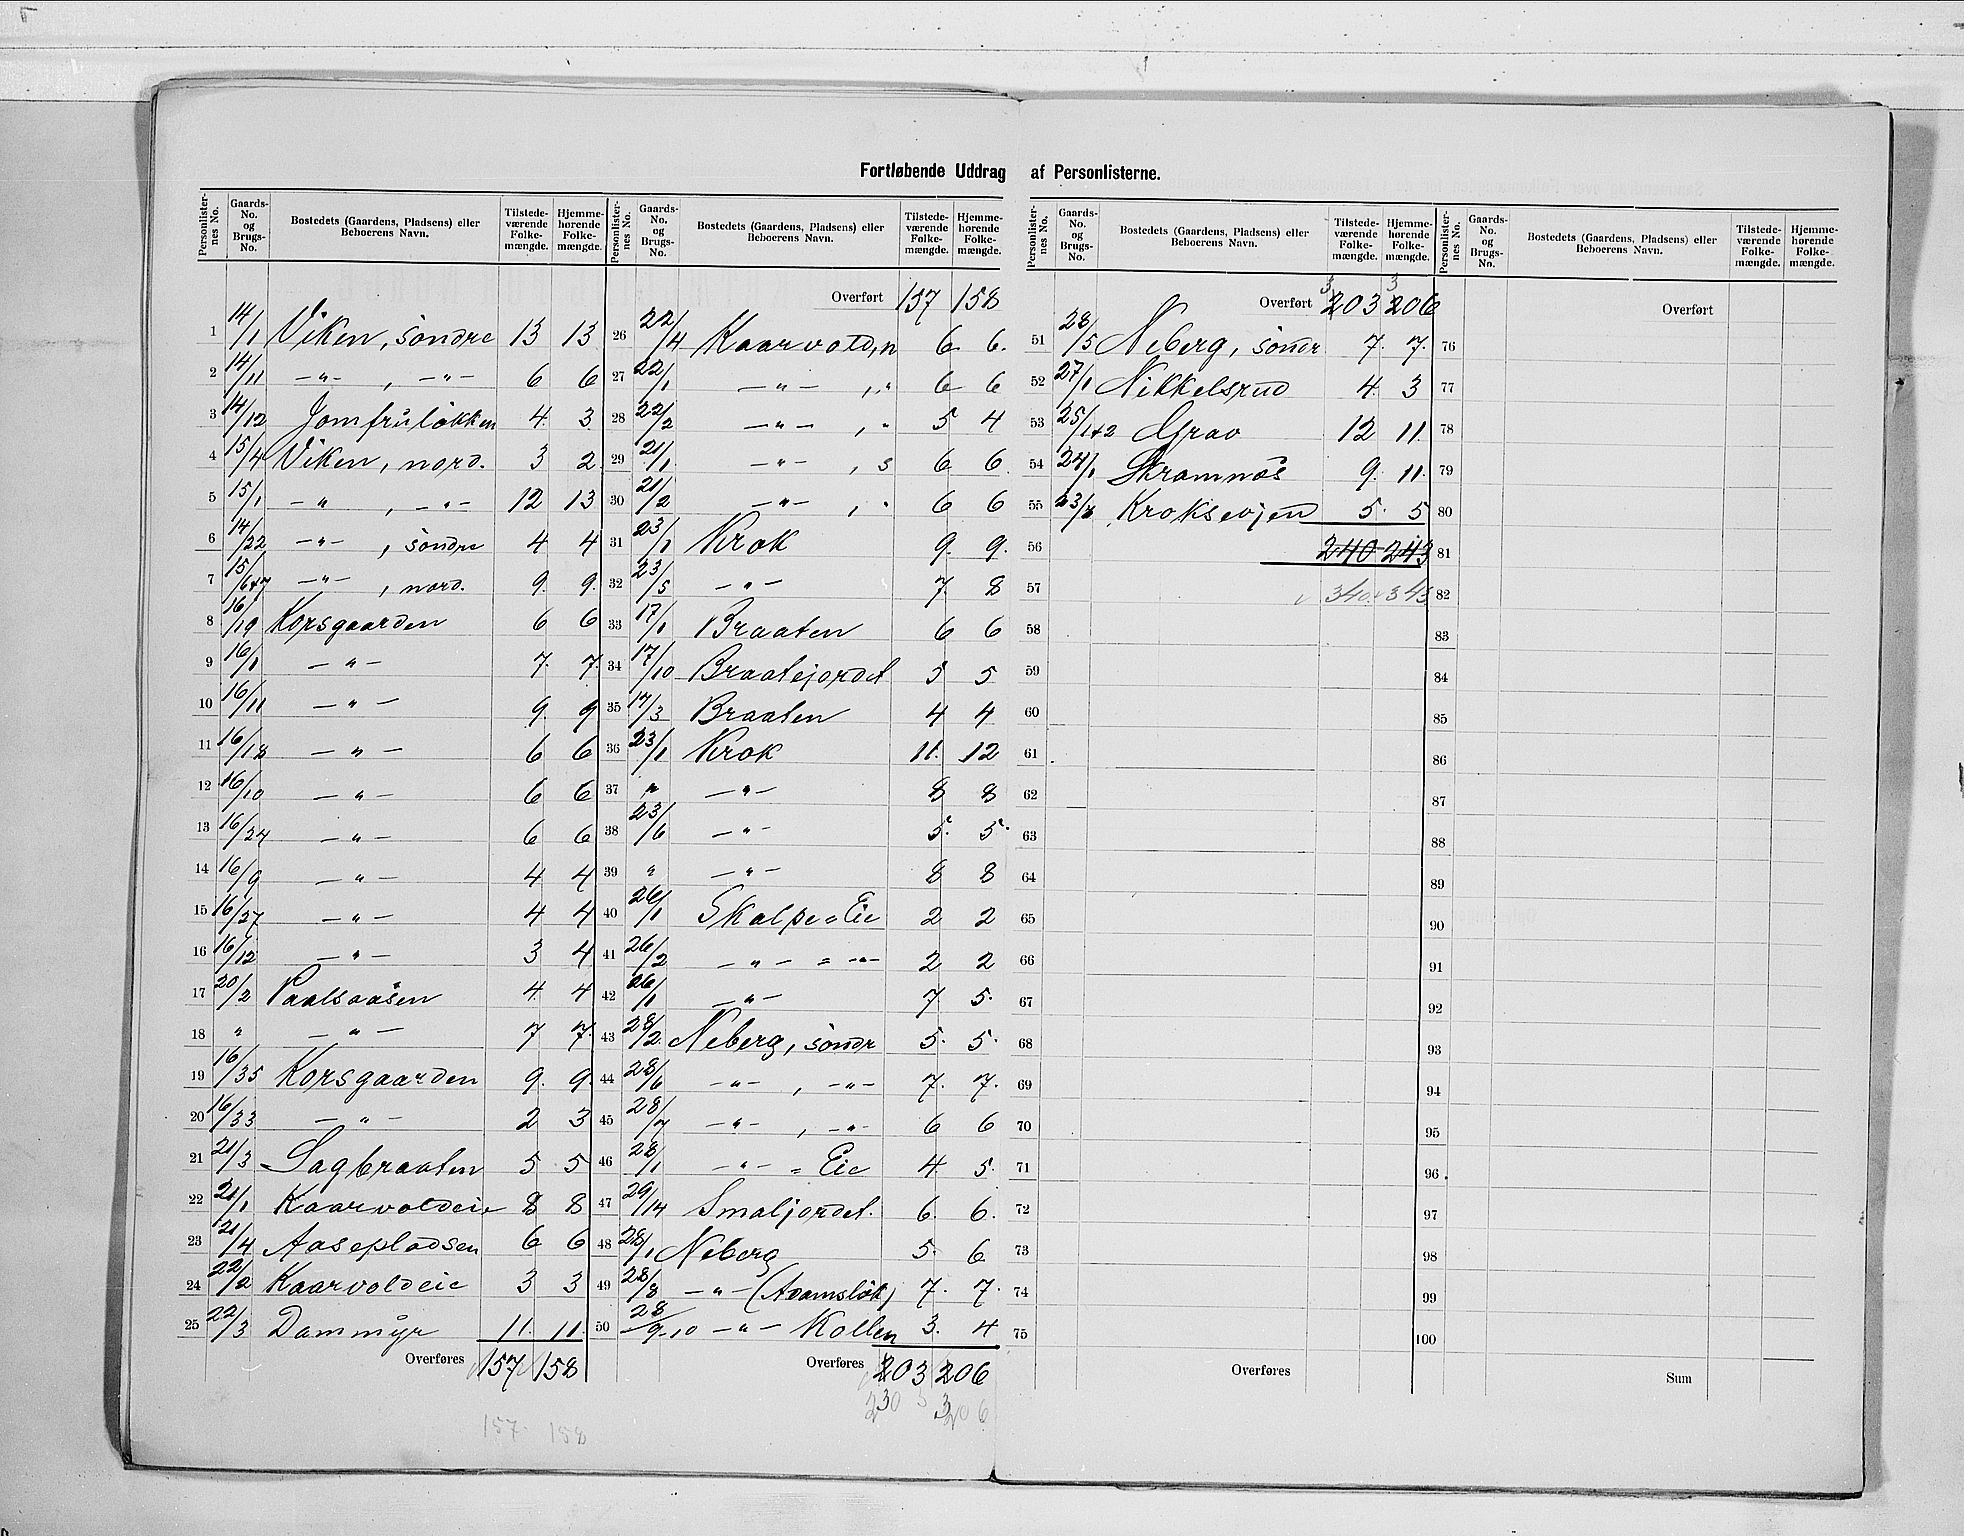 Fortløbende Uddrag af Personlisterne.
Personlister-nes No. Gaards-No. og Brugs-No. Bostedets (Gaardens, Pladsens) eller Beboerens Navn. Tilstede-værende Folke-mængde. Hjemme-hørende Folke-mængde.
1 14/1 Viken, søndre 13 13
2 14/11 —"— , —"— 6 6
3 14/12 Jomfruløkken 4 3
4 15/4 Viken, nord. 3 2
5 15/1 —"— , —"— 12 13
6 14/22 —"— , søndre 4 4
7 15/6+7 —"— , nord. 9 9
8 16/19 Korsgaarden 6 6
9 16/1 —"— 7 7
10 16/11 —"— 9 9
11 16/18 —"— 6 6
12 16/10 —"— 6 6
13 16/24 —"— 6 6
14 16/9 —"— 4 4
15 16/27 —"— 4 4
16 16/12 —"— 3 4
17 20/2 Paalsaasen 4 4
18 " —"— 7 7
19 16/35 Korsgaarden 9 9
20 16/33 —"— 2 3
21 21/3 Sagbraaten 5 5
22 21/1 Kaarvoldeie 8 8
23 21/4 Aasepladsen 6 6
24 22/2 Kaarvoldeie 3 3
25 22/3 Dammyr 11 11
Overføres 157 158
157 158
Personlister-nes No. Gaards-No. og Brugs-No. Bostedets (Gaardens, Pladsens) eller Beboerens Navn. Tilstede-værende Folke-mængde. Hjemme-hørende Folke-mængde.
Overført 157 158
26 22/4 Kaarvold, n 6 6
27 22/1 —"— , " 6 6
28 22/2 —"— , " 5 4
29 21/1 —"— , s 6 6
30 21/2 —"— , " 6 6
31 23/1 Krok 9 9
32 23/5 —"— 7 8
33 17/1 Braaten 6 6
34 17/10 Braatejordet 5 5
35 17/3 Braaten 4 4
36 23/1 Krok 11 12
37 " —"— 8 8
38 23/6 —"— 5 5
39 " —"— 8 8
40 26/1 Skalpe=Eie 2 2
41 26/2 —"— = —"— 2 2
42 26/1 —"— 7 5
43 28/2 Neberg, søndr 5 5
44 28/6 —"— , —"— 7 7
45 28/7 —"— , —"— 6 6
46 28/1 —"— = Eie 4 5
47 29/14 Smaljordet. 6 6
48 28/1 Neberg 5 6
49 28/8 —"— (Adamsløk) 7 7
50 28/9-10 —"— Kollen 3 4
Overføres 203 206
303 306
Personlister-nes No. Gaards-No. og Brugs-No. Bostedets (Gaardens, Pladsens) eller Beboerens Navn. Tilstede-værende Folke-mængde. Hjemme-hørende Folke-mængde.
3 3
Overført 203 206
51 28/5 Neberg, søndr 7 7
52 27/1 Nikkelsrud 4 3
53 25/1+2 Grav 12 11
54 24/1 Skramnæs 9 11
55 Kroksevjen 5 5
56 240 243
57 340 343
58
59
60
61
62
63
64
65
66
67
68
69
70
71
72
73
74
75
Overføres
Personlister-nes No. Gaards-No. og Brugs-No. Bostedets (Gaardens, Pladsens) eller Beboerens Navn. Tilstede-værende Folke-mængde. Hjemme-hørende Folke-mængde.
Overført
76
77
78
79
80
81
82
83
84
85
86
87
88
89
90
91
92
93
94
95
96
97
98
99
100
Sum